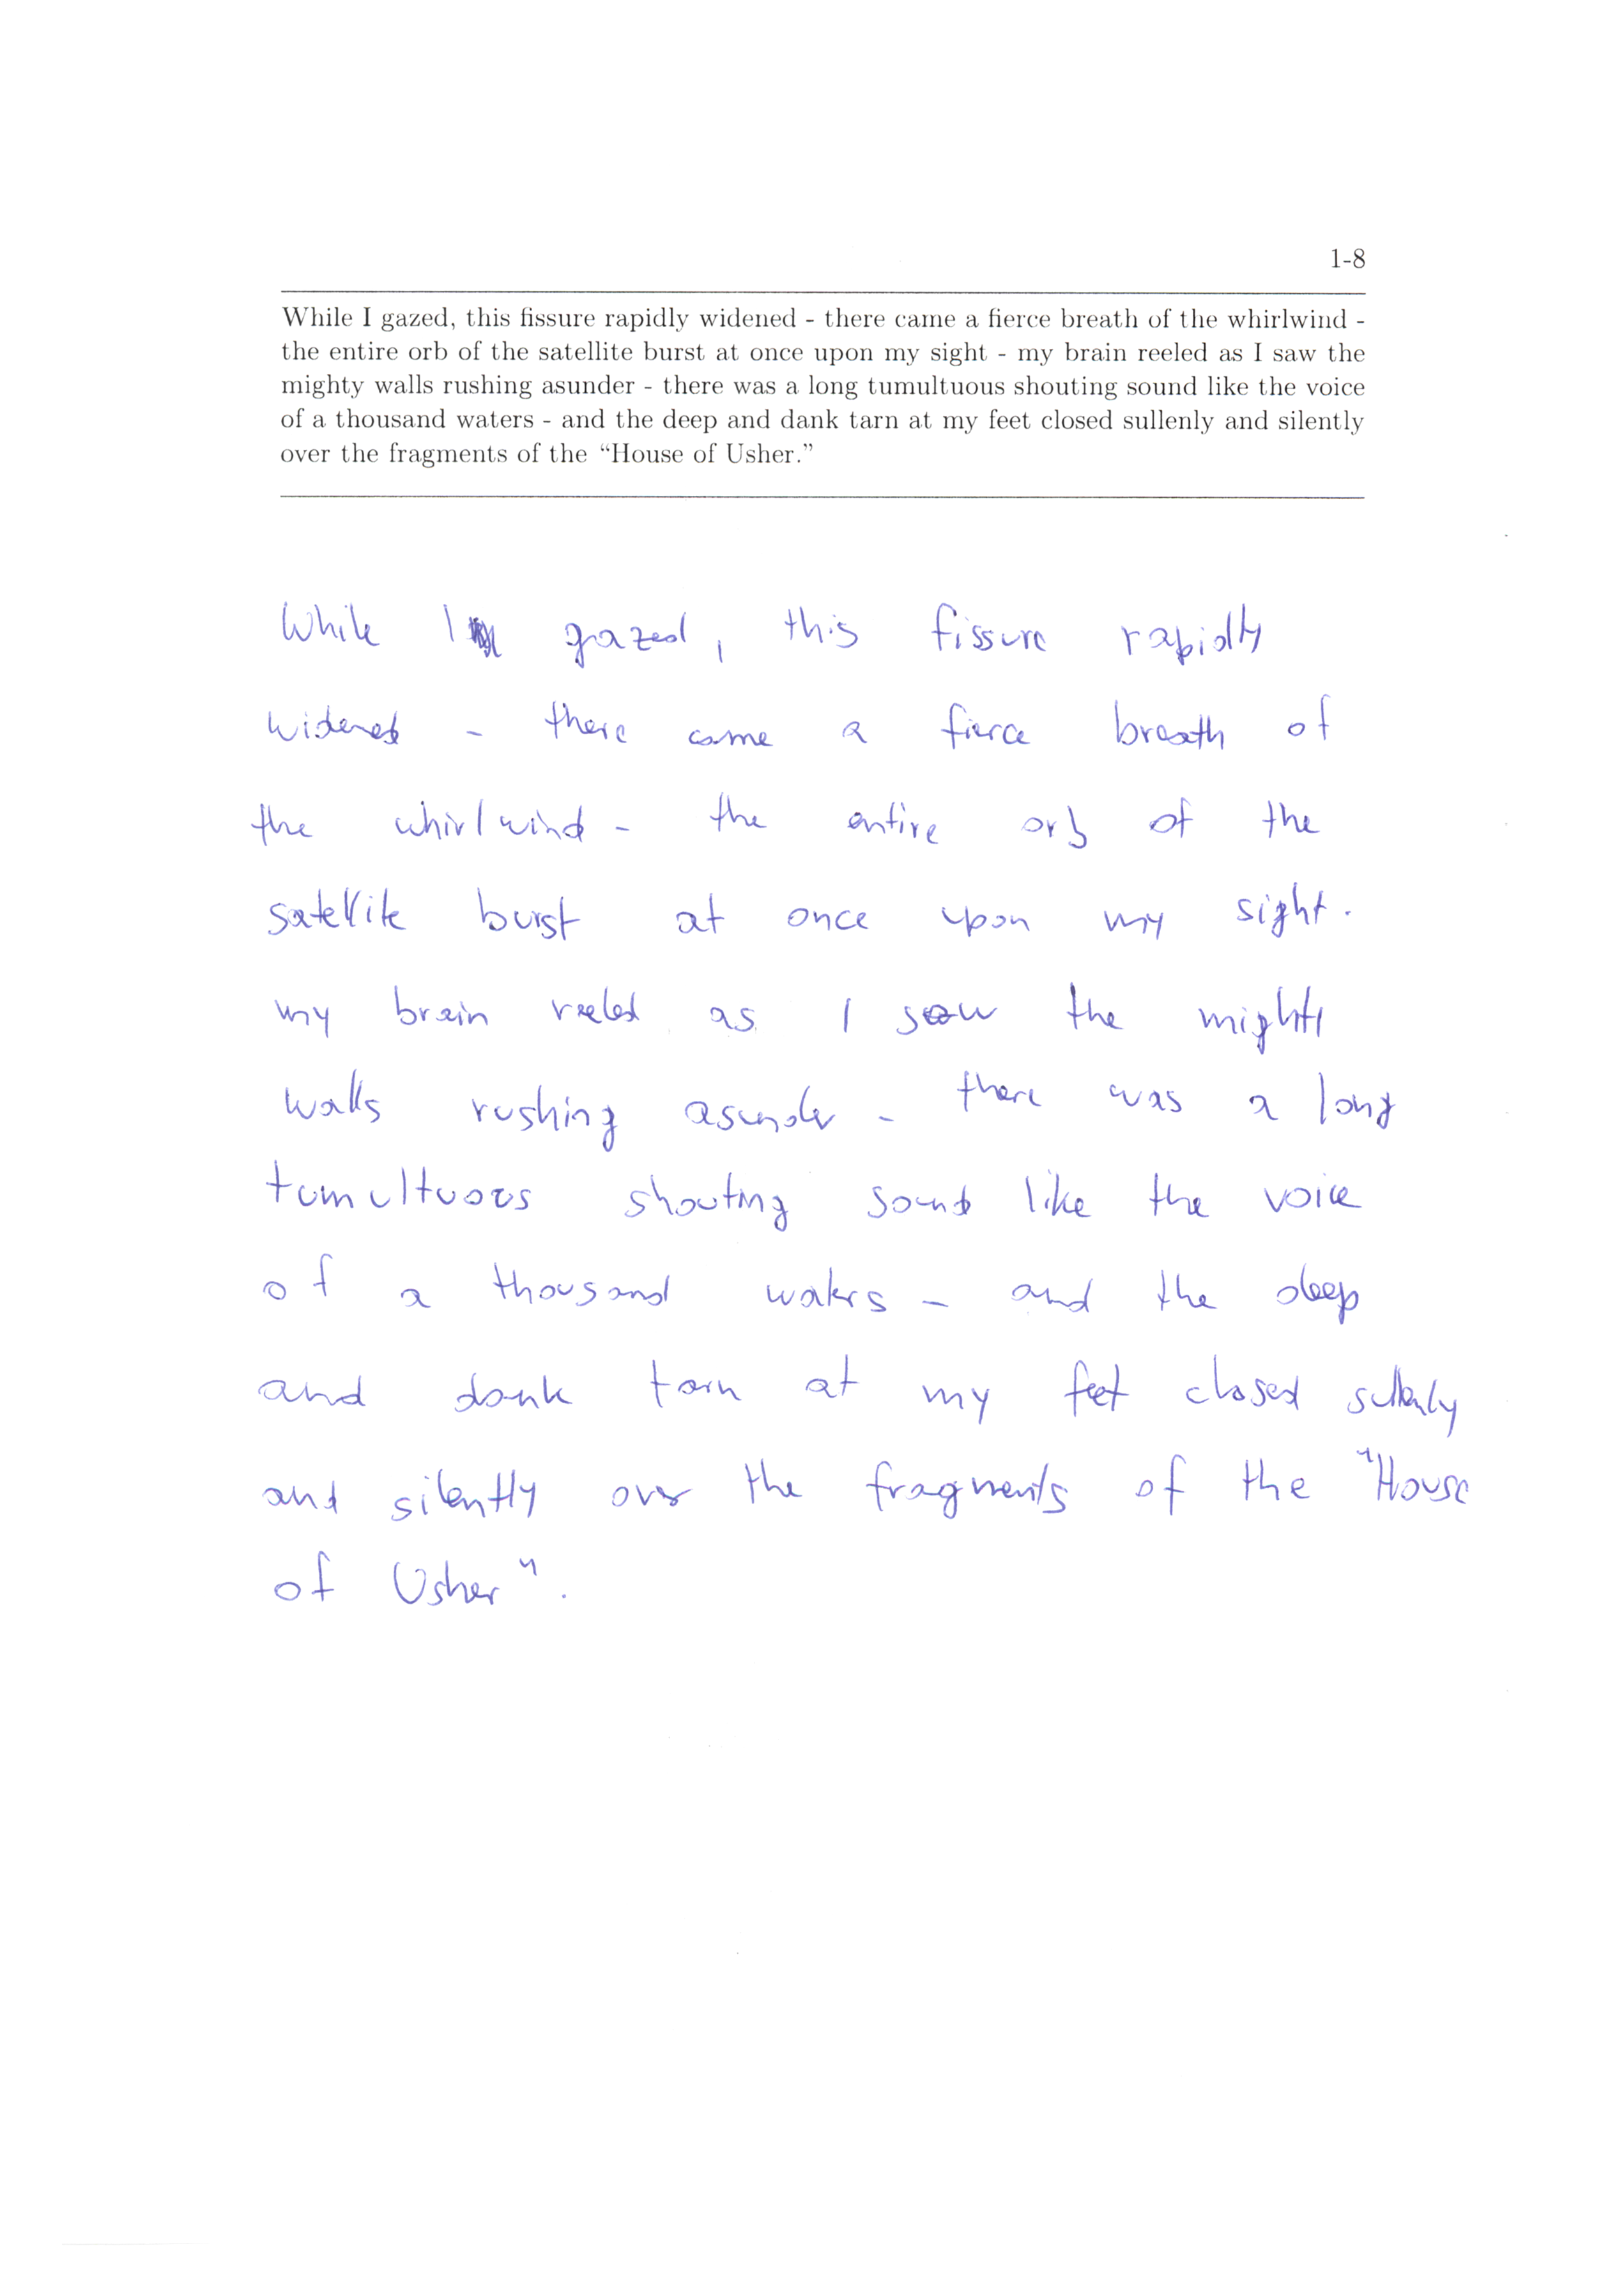 1-8
While I gazed, this fissure rapidly widened - there came a fierce breath of the whirlwind -
the entire orb of the satellite burst at once upon my sight - my brain reeled as I saw the
mighty walls rushing asunder - there was a long tumultuous shouting sound like the voice
of a thousand waters - and the deep and dank tarn at my feet closed sullenly and silently
over the fragments of the “House of Usher.”
While I gazed, this fissure rapidly
widened - there came a fierce breath of
the whirlwind - the entire orb of the
satellite burst at once upon my sight.
my brain reeled as I saw the mighty
walls rushing asunder - there was a long
tumultuous shouting sound like the voice
of a thousand waters - and the deep
and dank tarn at my feet closed sullenly
and silently over the fragments of the "House
of Usher".